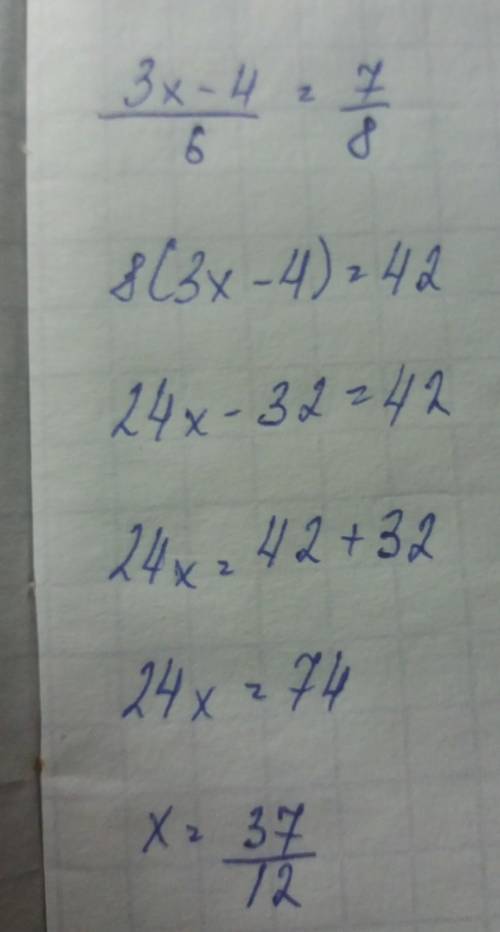 3x - 4 / 6 = 7 / 8
8(3x - 4) = 42
24x - 32 = 42
24x = 42 + 32
24x = 74
x = 37 / 12